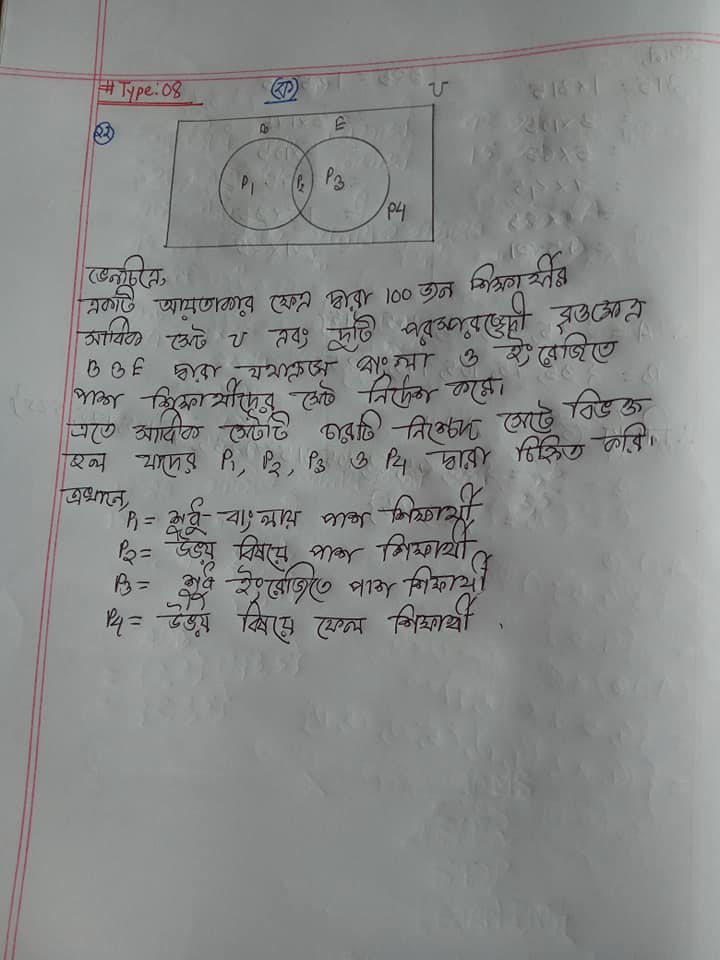 # Type: 08
(ক)
U
২২
B
E
P1
P2
P3
P4
ভেনচিত্রে,
একটি আয়তাকার ক্ষেত্র দ্বারা 100 জন শিক্ষার্থীর
সার্বিক সেট U এবং দুটি পরস্পরছেদী বৃত্তক্ষেত্র
B ও E দ্বারা যথাক্রমে বাংলা ও ইংরেজিতে
পাশ শিক্ষার্থীদের সেট নির্দেশ করে।
এতে সার্বিক সেটটি চারটি নিশ্ছেদ সেটে বিভক্ত
হল যাদের P1, P2, P3 ও P4 দ্বারা চিহ্নিত করি।
এখানে,
P1 = শুধু বাংলায় পাশ শিক্ষার্থী
P2 = উভয় বিষয়ে পাশ শিক্ষার্থী
P3 = শুধু ইংরেজিতে পাশ শিক্ষার্থী
P4 = উভয় বিষয়ে ফেল শিক্ষার্থী .